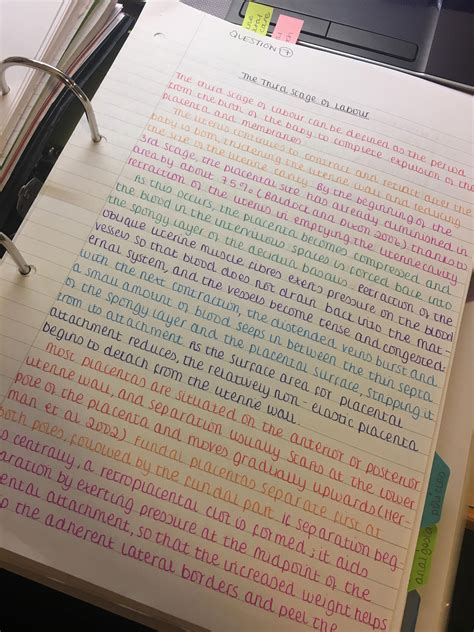 QUESTION 7
The Third Stage of Labour
The third stage of labour can be defined as the period
from the birth of the baby to complete expulsion of the
placenta and membranes.
The uterus continues to contract and retract after the
baby is born, thickening the uterine wall and reducing
the size of the uterine cavity. By the beginning of the
3rd stage, the placental site has already diminished in
area by about 75% (Baldock and Dixon 2006) thanks to
retraction of the uterus in emptying the uterine cavity
As this occurs, the placenta becomes compressed and
the blood in the intervillous spaces is forced back into
the spongy layer of the decidua basalis. Retraction of the
oblique uterine muscle fibres exerts pressure on the blood
vessels so that blood does not drain back into the mat-
ernal system, and the vessels become tense and congested.
with the next contraction, the distended veins burst and
a small amount of blood seeps in between the thin septa
of the spongy layer and the placental surface, stripping it
from its attachment. As the surface area for placental
attachment reduces, the relatively non-elastic placenta
begins to detach from the uterine wall.
Most placentas are situated on the anterior or posterior
uterine wall, and separation usually starts at the lower
pole of the placenta and moves gradually upwards (Her-
man et al. 2002). Fundal placentas separate first at
both poles, followed by the fundal part. If separation beg-
centrally, a retroplacental clot is formed; it aids
aration by exerting pressure at the midpoint of the
ental attachment, so that the increased weight helps
the adherent lateral borders and peel the
analgesia